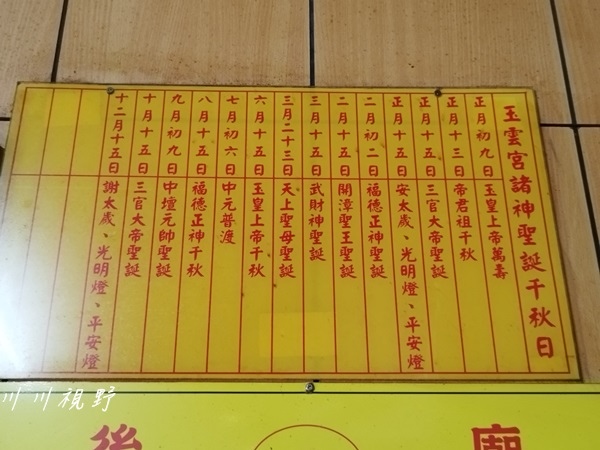 玉雲宮諸神聖誕千秋日
正月初九日 玉皇上帝萬壽
正月十三日 帝君祖千秋
正月十五日 三官大帝聖誕
正月十五日 安太歲、光明燈、平安燈
二月初二日 福德正神聖誕
二月十五日 開漳聖王聖誕
三月十五日 武財神聖誕
三月二十三日 天上聖母聖誕
六月十五日 玉皇上帝千秋
七月初六日 中元普渡
八月十五日 福德正神千秋
九月初九日 中壇元帥聖誕
十月十五日 三官大帝聖誕
十二月十五日 謝太歲、光明燈、平安燈
川川視野
後
廟